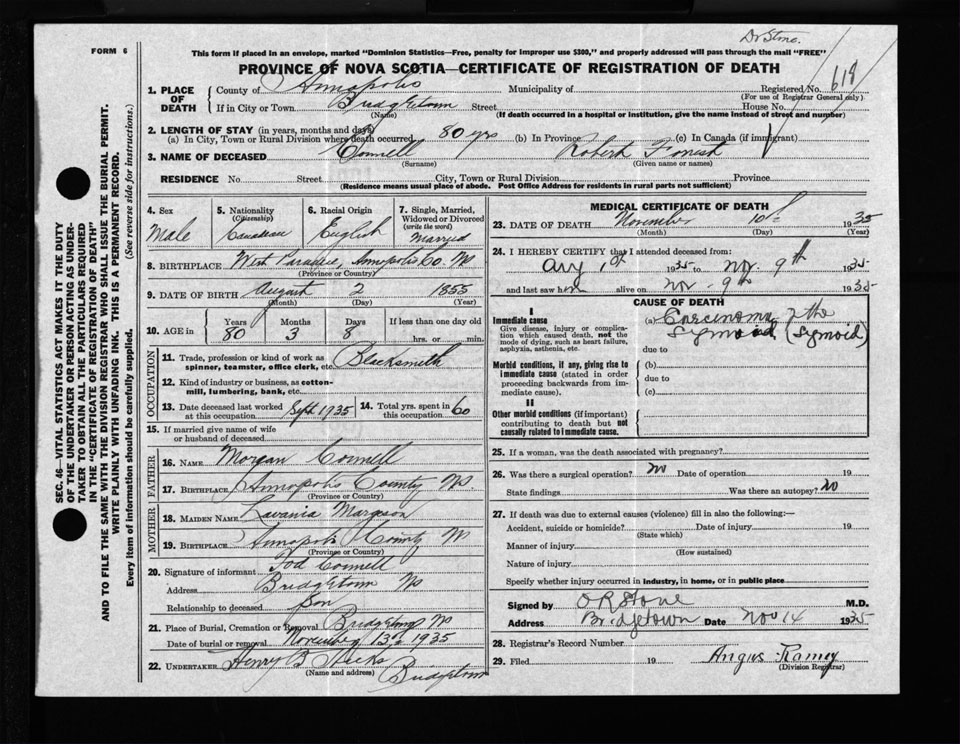 Dr Stone.
FORM 6
This form if placed in an envelope, marked "Dominion Statistics—Free, penalty for improper use $300," and properly addressed will pass through the mail "FREE"
PROVINCE OF NOVA SCOTIA—CERTIFICATE OF REGISTRATION OF DEATH
619
1. PLACE OF DEATH
County of Annapolis Municipality of Registered No.
(For use of Registrar General only)
If in City or Town Bridgetown Street House No.
(Name) (If death occurred in a hospital or institution, give the name instead of street and number)
2. LENGTH OF STAY (in years, months and days)
(a) In City, Town or Rural Division where death occurred 80 yrs (b) In Province (c) In Canada (if immigrant)
3. NAME OF DECEASED Connell Robert Forrest
(Surname) (Given name or names)
RESIDENCE No. Street City, Town or Rural Division Province
(Residence means usual place of abode. Post Office Address for residents in rural parts not sufficient)
4. Sex
Male
5. Nationality
(Citizenship)
Canadian
6. Racial Origin
English
7. Single, Married, Widowed or Divorced
(write the word)
Married
8. BIRTHPLACE West Paradise, Annapolis Co. NS
(Province or Country)
9. DATE OF BIRTH August 2 1855
(Month) (Day) (Year)
10. AGE in
Years Months Days If less than one day old
80 3 8 hrs. or min.
OCCUPATION
11. Trade, profession or kind of work as spinner, teamster, office clerk, etc. Blacksmith
12. Kind of industry or business, as cotton-mill, lumbering, bank, etc.
13. Date deceased last worked at this occupation Sept 1935
14. Total yrs. spent in this occupation 60
15. If married give name of wife or husband of deceased
FATHER
16. NAME Morgan Connell
17. BIRTHPLACE Annapolis County NS.
(Province or Country)
MOTHER
18. MAIDEN NAME Lavania Margeson
19. BIRTHPLACE Annapolis County NS
(Province or Country)
20. Signature of informant Connell
Address Bridgetown NS
Relationship to deceased Son
21. Place of Burial, Cremation or Removal Bridgetown NS
Date of burial or removal November 13th 1935
22. UNDERTAKER Henry B Hicks
(Name and address) Bridgetown
MEDICAL CERTIFICATE OF DEATH
23. DATE OF DEATH November 10th 1935
(Month) (Day) (Year)
24. I HEREBY CERTIFY that I attended deceased from:
1st 1935 to Nov. 9th 1935
and last saw him alive on Nov. 9th 1935
CAUSE OF DEATH
I
Immediate cause
Give disease, injury or complication which caused death, not the mode of dying, such as heart failure, asphyxia, asthenia, etc.
(a) Carcinoma of the
Sygmoid (Sygmoid)
due to
Morbid conditions, if any, giving rise to immediate cause (stated in order proceeding backwards from immediate cause).
(b)
due to
(c)
II
Other morbid conditions (if important) contributing to death but not causally related to immediate cause.
25. If a woman, was the death associated with pregnancy?
26. Was there a surgical operation? No Date of operation 19
State findings Was there an autopsy? No
27. If death was due to external causes (violence) fill in also the following:—
Accident, suicide or homicide? Date of injury 19
(State which)
Manner of injury
(How sustained)
Nature of injury
Specify whether injury occurred in industry, in home, or in public place
Signed by O R Stone M.D.
Address Bridgetown Date Nov 14 1935
28. Registrar's Record Number
29. Filed 19 Angus Ramey
(Division Registrar)
SEC. 46—VITAL STATISTICS ACT MAKES IT THE DUTY
OF THE UNDERTAKER OR PERSON ACTING AS UNDER-
TAKER TO OBTAIN ALL THE PARTICULARS REQUIRED
IN THE "CERTIFICATE OF REGISTRATION OF DEATH"
AND TO FILE THE SAME WITH THE DIVISION REGISTRAR WHO SHALL ISSUE THE BURIAL PERMIT.
WRITE PLAINLY WITH UNFADING INK. THIS IS A PERMANENT RECORD.
Every item of information should be carefully supplied. (See reverse side for instructions.)